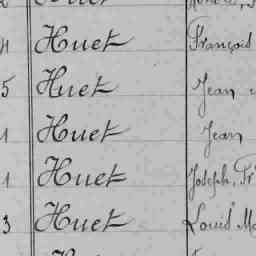 Huet François
5 Huet Jean
1 Huet Jean
1 Huet Joseph, Fr
3 Huet Louis Ma